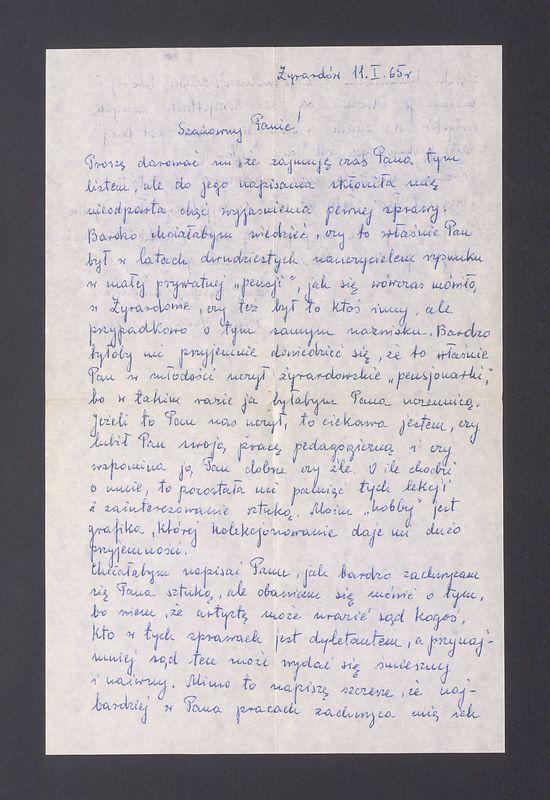 Żyrardów 11.I.65r
Szanowny Panie!
Proszę darować mi że zajmuję czas Pana tym
listem, ale do jego napisania skłoniła mię
nieodparta chęć wyjaśnienia pewnej sprawy.
Bardzo chciałabym wiedzieć, czy to właśnie Pan
był w latach dwudziestych nauczycielem rysunku
w małej prywatnej „pensji”, jak się wówczas mówiło,
w Żyrardowie, czy też był to ktoś inny, ale
przypadkowo o tym samym nazwisku. Bardzo
byłoby mi przyjemnie dowiedzieć się, że to właśnie
Pan w młodości uczył żyrardowskie „pensjonarki”,
bo w takim razie ja byłabym Pana uczennicą.
Jeżeli to Pan nas uczył, to ciekawa jestem, czy
lubił Pan swoją pracę pedagogiczną i czy
wspomina ją Pan dobrze czy źle. O ile chodzi
o mnie, to pozostała mi pamięć tych lekcji
i zainteresowanie sztuką. Moim „hobby” jest
grafika, której kolekcjonowanie daje mi dużo
przyjemności.
Chciałabym napisać Panu, jak bardzo zachwycam
się Pana sztuką, ale obawiam się mówić o tym,
bo wiem, że artystę może urazić sąd kogoś,
kto w tych sprawach jest dyletantem, a przynaj-
mniej sąd ten może wydać się śmieszny
i naiwny. Mimo to napiszę szczerze, że naj-
bardziej w Pana pracach zachwyca mię ich